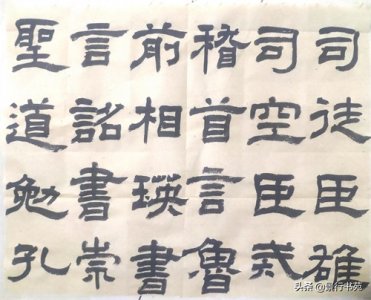 司徒臣雄
司空臣戒
稽首言魯
前相瑛書
言詔書崇
聖道勉孔
头条 @景行书苑